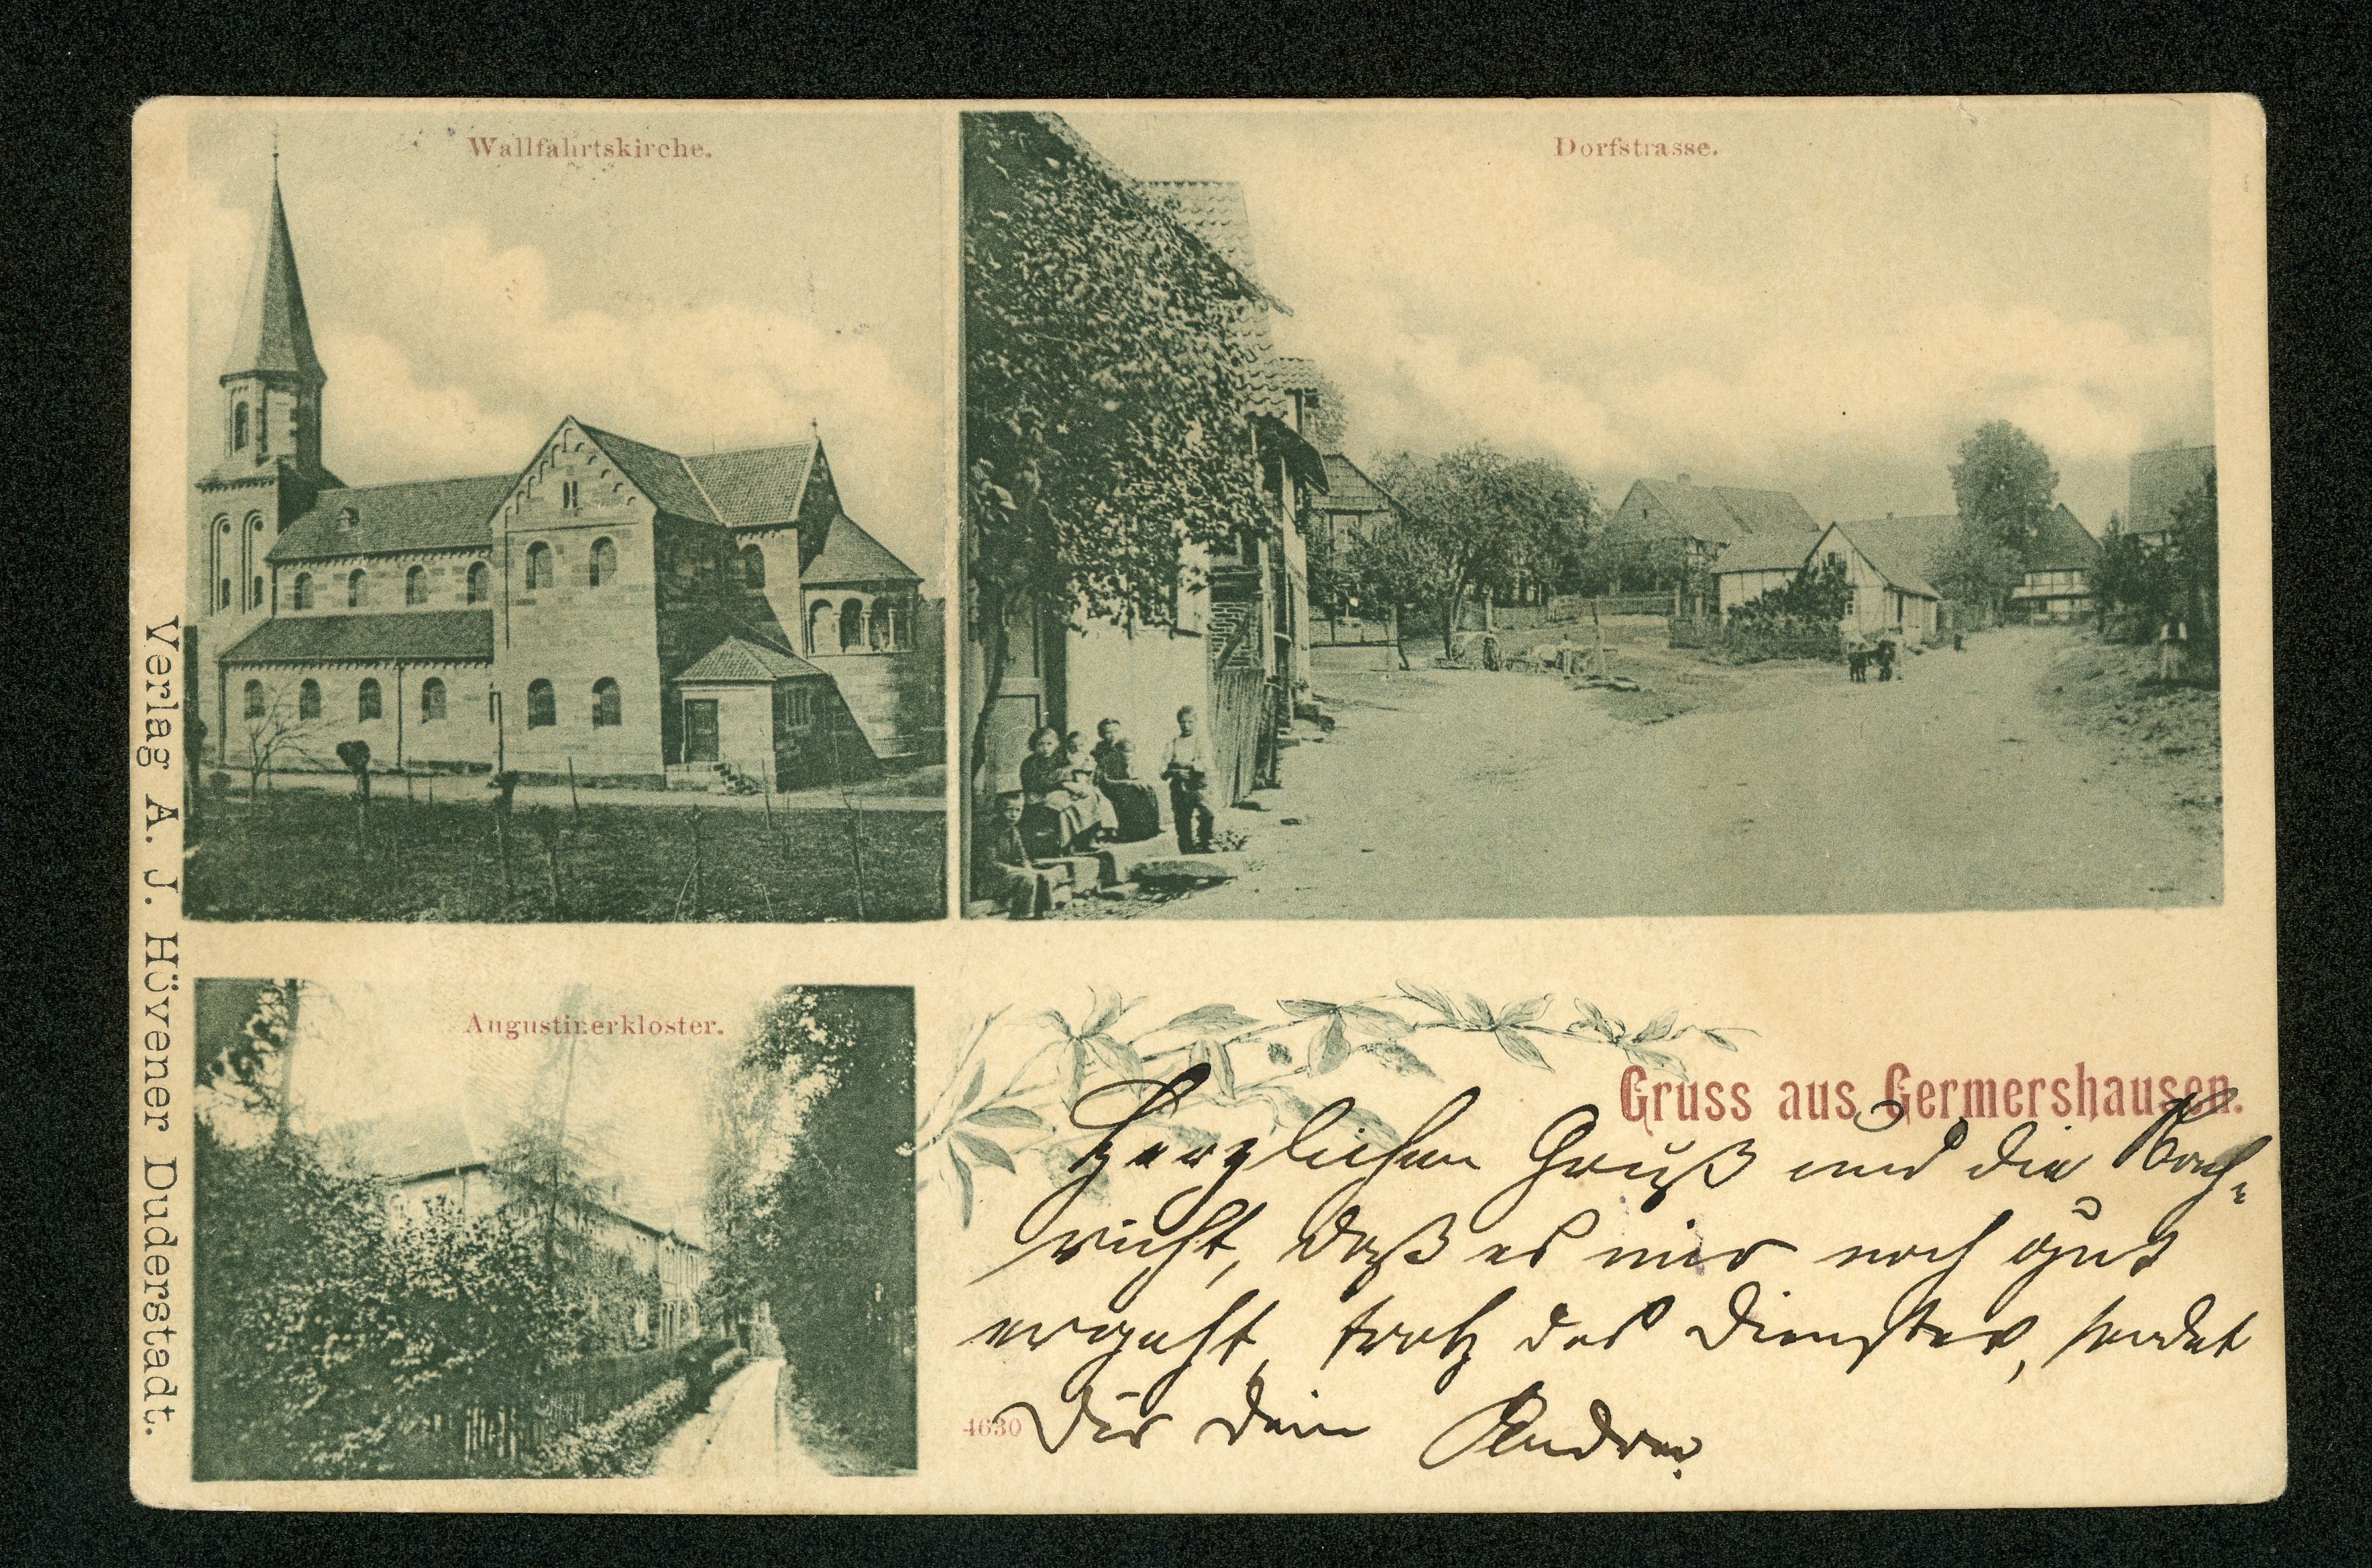 Wallfahrtskirche.
Dorfstrasse.
Verlag A. J. Hövener Duderstadt.
Augustinerkloster.
Gruss aus Germershausen.
Herzlichen Gruß und die Nach-
richt, daß es mir noch gut
ergeht, trotz des Dienstes, sendet
4630
Dir Dein